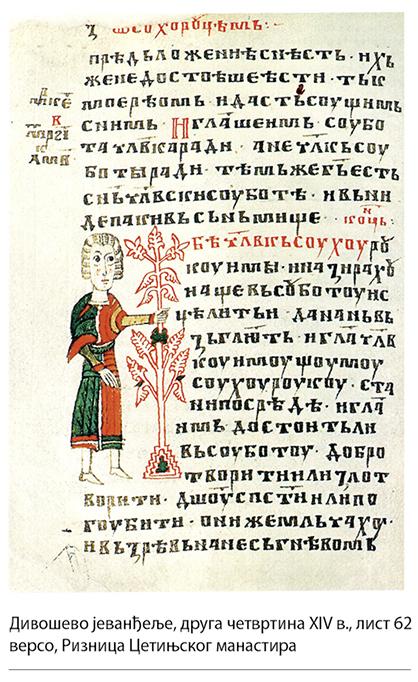 прѣдьложениѣснѣсть. ихь
женедостоѣшеѣсти. тьк
идастьсоущимь
снимь Иглашемь соубо
тачлвкаради. анечлвкьсоу
ботыради. тѣмьжегьесть
сньчлвскисоуботѣ. ивьни
депакивьсьньмище. конць
бѣчлвкьсоухоуроу
коуимы. иназирахоу
вьсоботоуис
целитьи
зьглють иглачлв
коуимоушоумоу
соухоуроукоу. ста
нипосрѣдѣ. игла
имь достоитьли
вьсоботоу. добро
творитиилизлот
ворити. дшоуспстиилипо
гоубити. онижемльчахоу.
ивьзрѣвьнанесьгнѣвомь
Дивошево јеванђеље, друга четвртина XIV в., лист 62
версо, Ризница Цетињског манастира